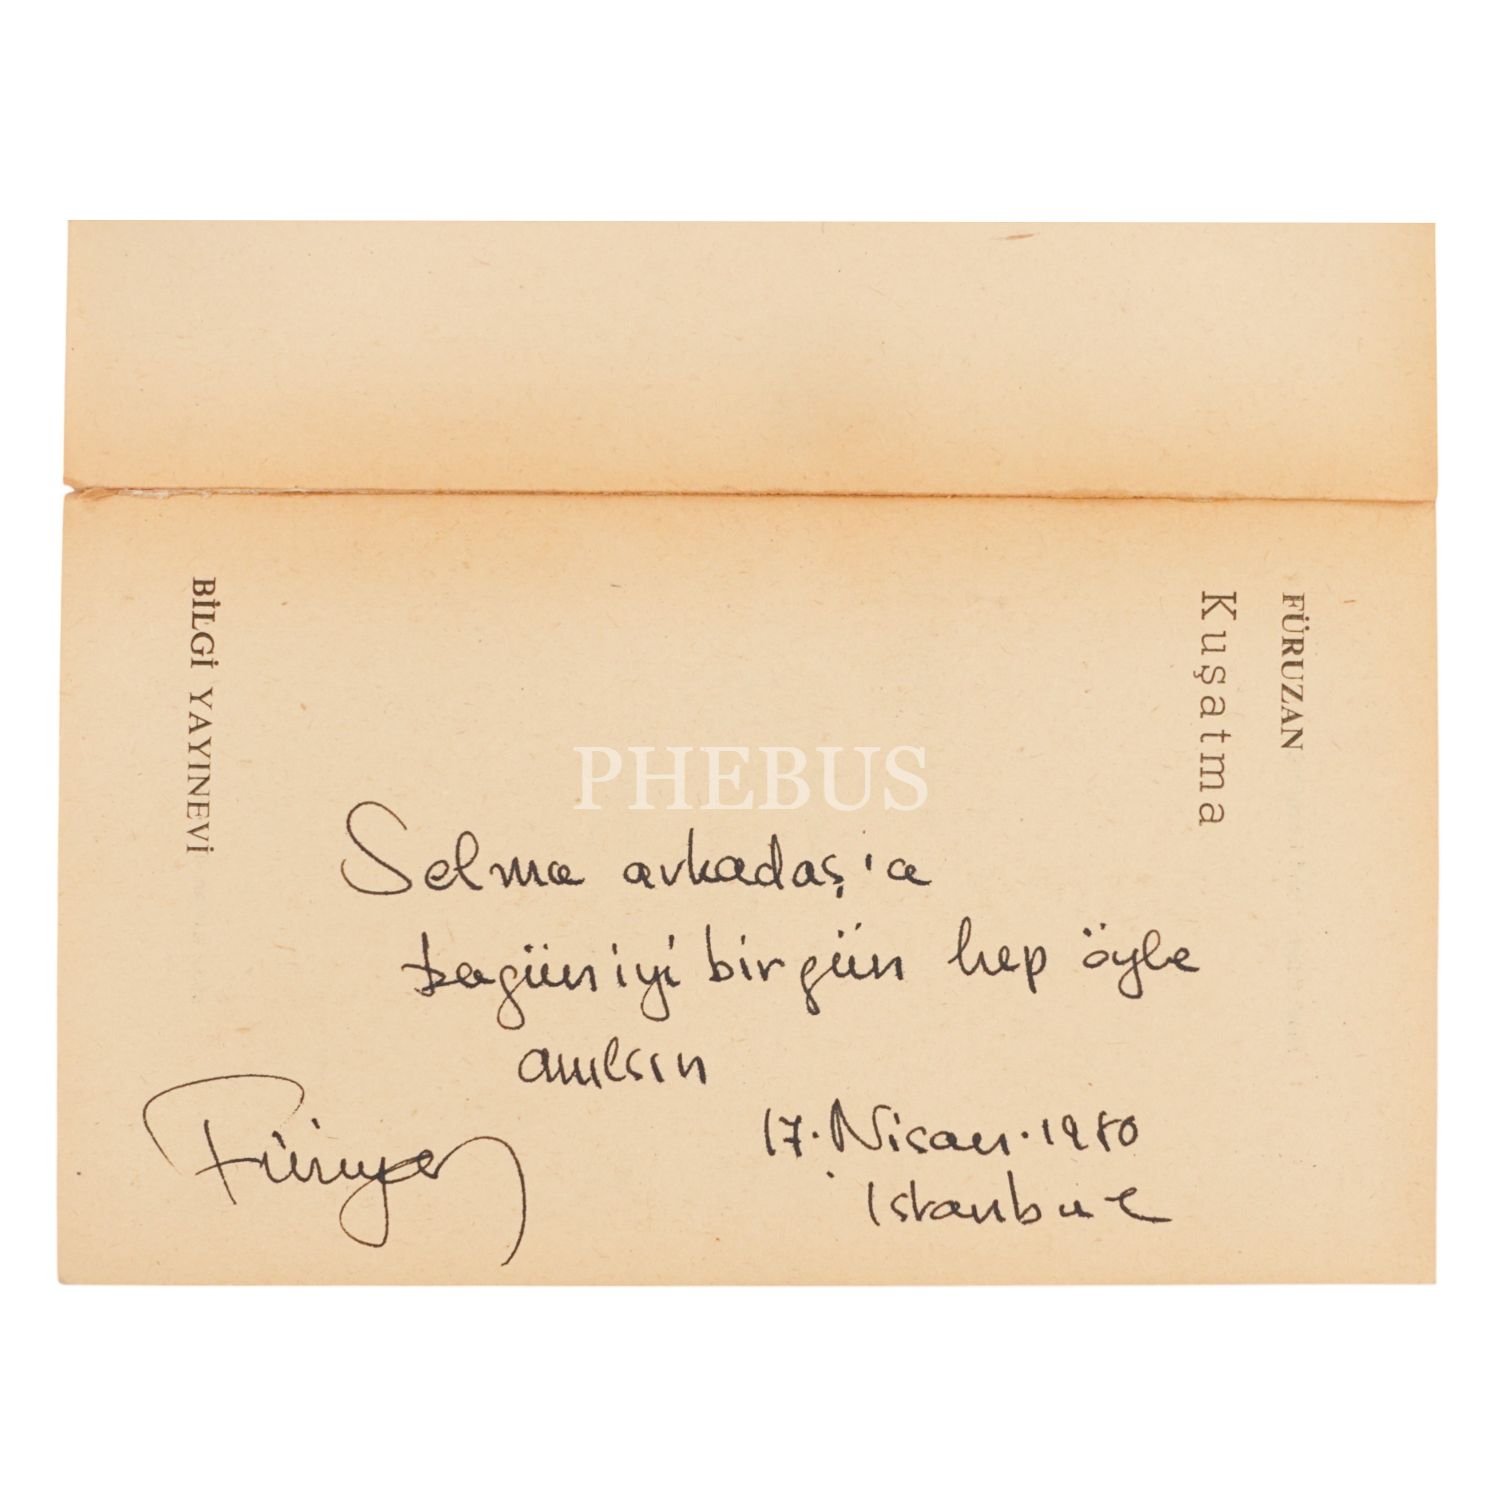 FÜRUZAN
Kuşatma
BİLGİ YAYINEVİ
PHEBUS
Selma arkadaş'a
bugün iyi bir gün hep öyle
anılsın
Füruzan
17. Nisan. 1980
İstanbul